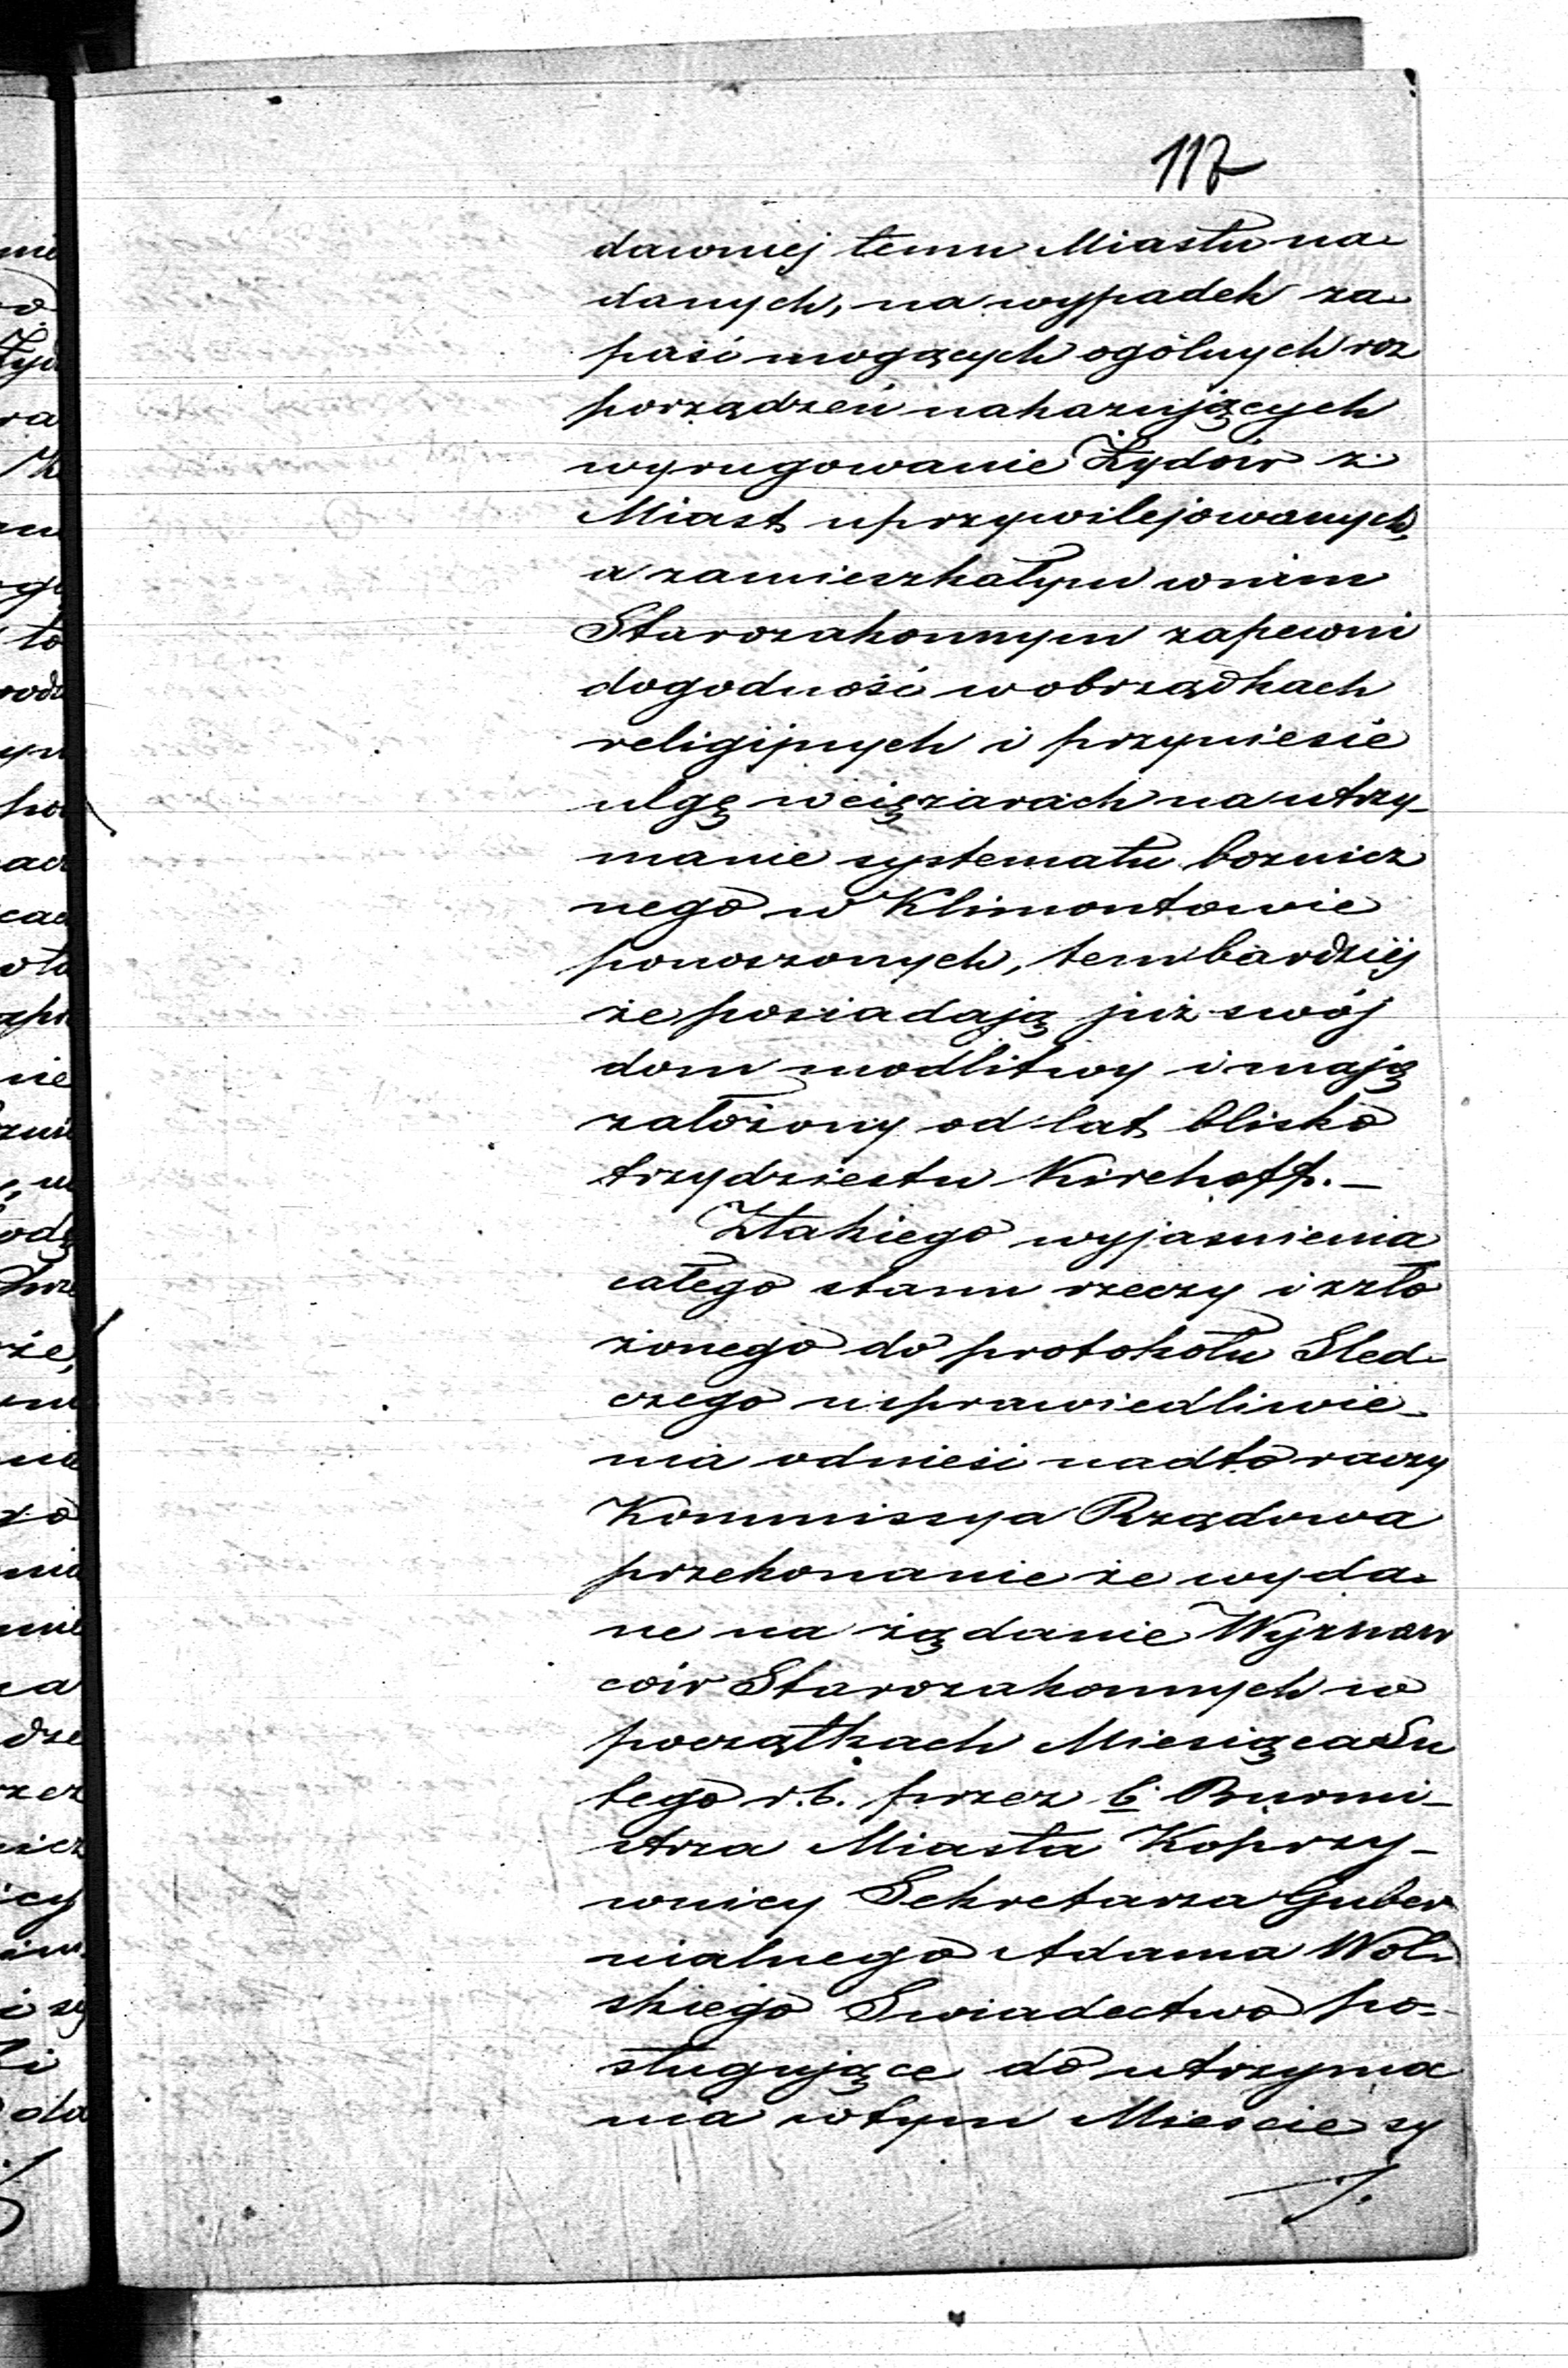 117
dawniej temu Miastu na-
danych, na wypadek za-
paść mogących ogólnych roz
porządzeń nakazujących
wyrugowanie Żydów z
Miast uprzywilejowanych,
a zamieszkałym w nim
Starozakonnym zapewni
dogodność w obrządkach
religijnych i przyniesie
ulgę w ciężarach na utrzy-
manie systematu boznicz
nego w Klimontowie
ponoszonych, tem bardziej
że posiadają już swój
dom modlitwy i mają
założony od lat blisko
trzydziestu Kirchoff.—
Z takiego wyjasnienia
całego stanu rzeczy i zzło
żonego do protokołu Sled-
czego usprawiedliwie-
nia odnieść nadto raczy
Kommissya Rządowa
przekonanie że wyda-
ne na żądanie Wyznaw
ców Starozakonnych w
początkach Miesiąca Lu
tego r.b. przez b. Burmi-
strza Miasta Koprzy-
wnicy Sekretarza Guber
nialnego Adama Wol-
skiego Swiadectwo po-
sługujące do utrzyma
nia w tym Miescie sy